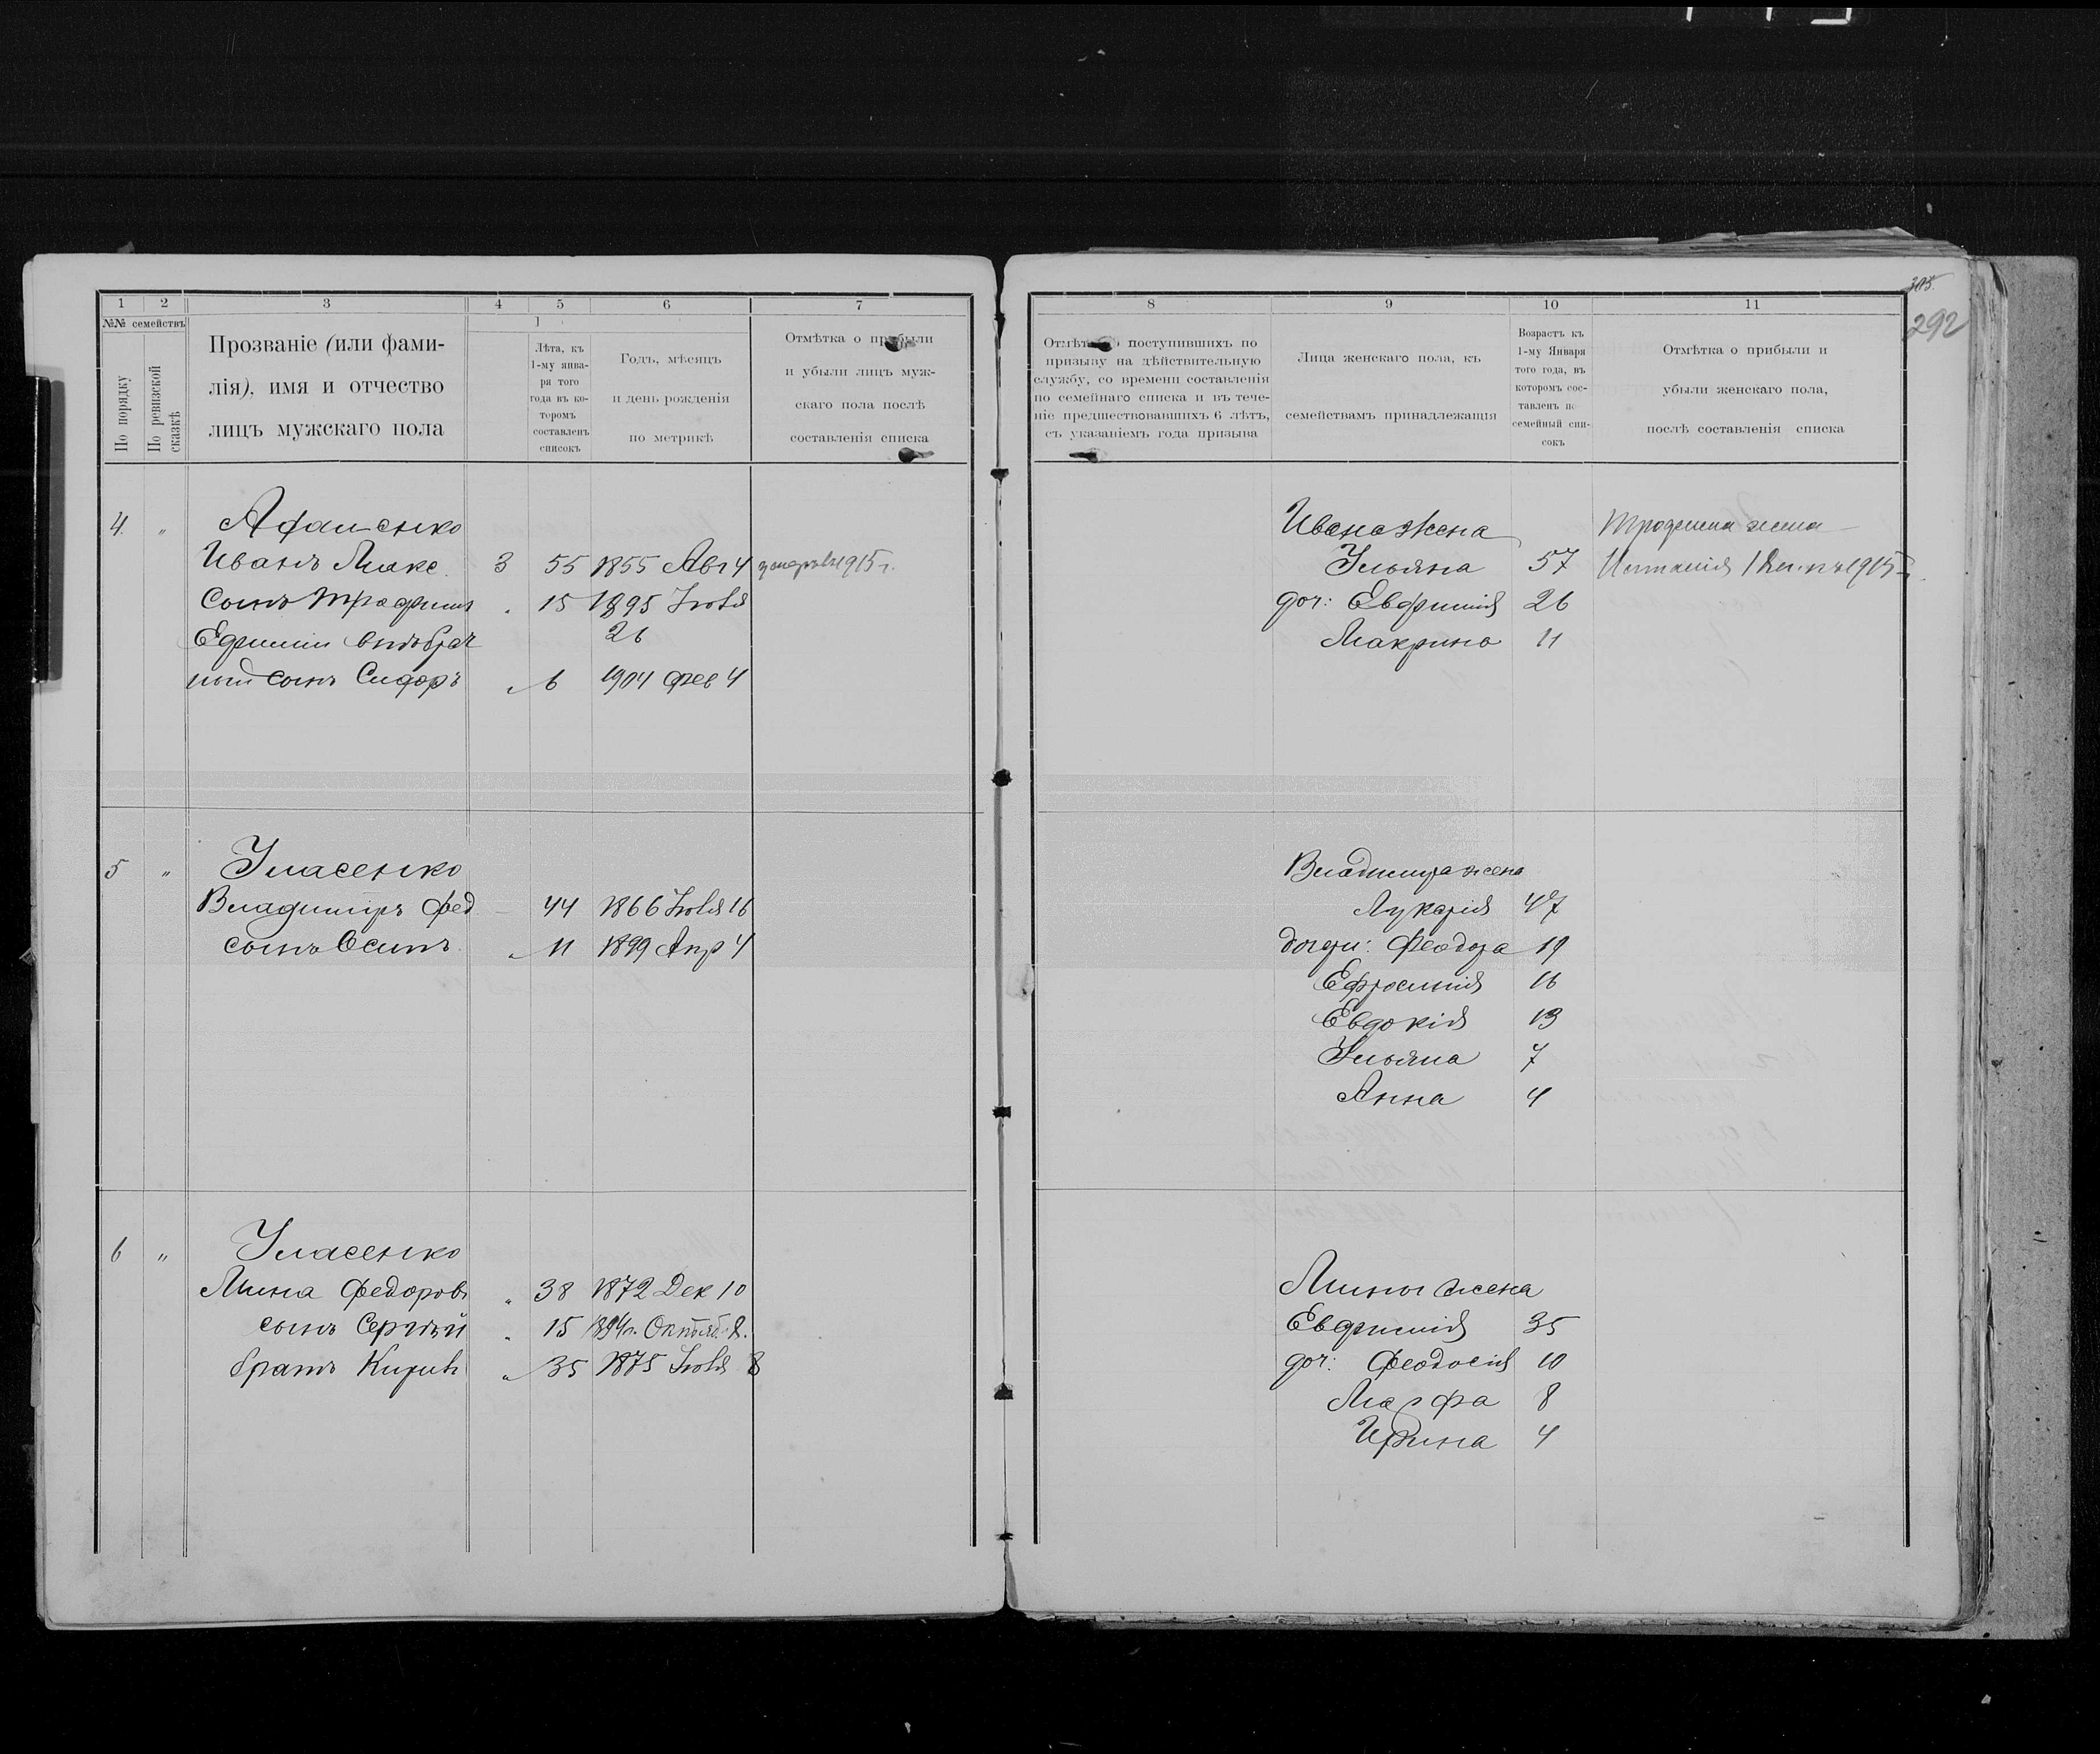 1 2 3 4 5 6 7
№№ семействъ
По порядку
По ревизской сказкѣ
Прозваніе (или фами-
лія), имя и отчество
лицъ мужскаго пола
Лѣта, къ
1-му янва-
ря того
года въ ко-
торомъ
составленъ
списокъ
Годъ, мѣсяцъ
и день рожденія
по метрикѣ
Отмѣтка о прибыли
и убыли лицъ муж-
скаго пола послѣ
составленія списка
4 "
Иванъ Макс. 3 55 1855 Авг 4 1915 г.
Сынъ 15 1895 Іюля
26
ный сынъ Сидоръ 6 1904 Фев 4
5 " Уласенко
Владимиръ Фед 44 1866 Іюля 16
сынъ Осипъ 11 1899 Апр 4
6 " Уласенко
Мина Федоровъ 38 1872 Дек 10
сынъ Сергѣй 15 1894 г. Октяб. 8.
братъ 35 1875 Іюля 8
8 9 10 11
305.
292
поступившихъ по
призыву на дѣйствительную
службу, со времени составленія
по семейнаго списка и въ тече-
ніе предшествовавшихъ 6 лѣтъ,
съ указаніемъ года призыва
Лица женскаго пола, къ
семействамъ принадлежащія
Возрастъ къ
1-му Января
того года, въ
которомъ сос-
тавленъ по
семейный спи-
сокъ
Отмѣтка о прибыли и
убыли женскаго пола,
послѣ составленія списка
Ивана жена жена
Ульяна 57 1915 г.
доч: Евфимія 26
Макрина 11
Владимира жена
Лукерія 47
дочери: Феодора 19
Ефросинія 16
Евдокія 13
Ульяна 7
Анна 4
Мины жена
Евфимія 35
доч: Феодосія 10
Марфа 8
Ирина 4